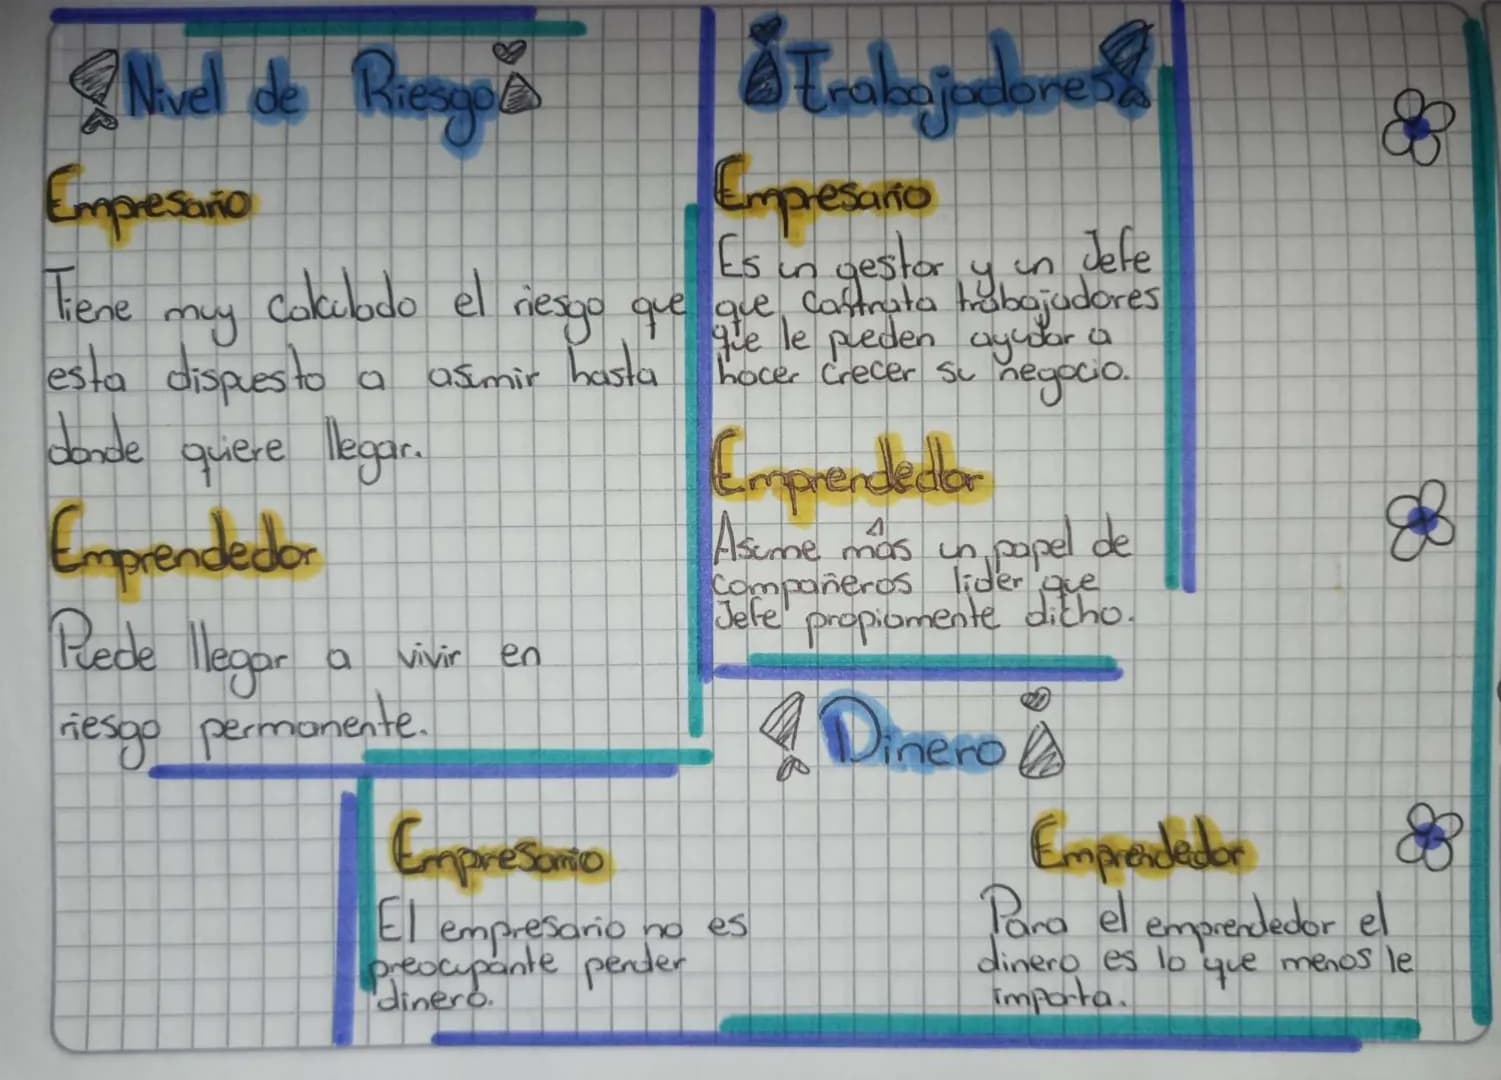 ¡Nivel de Riesgo!
Empresario
Tiene muy calculado el riesgo que
esta dispuesto a asumir hasta
donde quiere llegar.
Emprendedor
Puede llegar a vivir en
riesgo permanente.
¡Trabajadores!
Empresario
Es un gestor y un Jefe
que contrata trabajadores
que le pueden ayudar a
hacer crecer su negocio.
Emprendedor
Asume más un papel de
compañeros lider que
Jefe propiamente dicho.
¡Dinero!
Empresario
El empresario no es
preocupante perder
dinero.
Emprendedor
Para el emprendedor el
dinero es lo que menos le
importa.